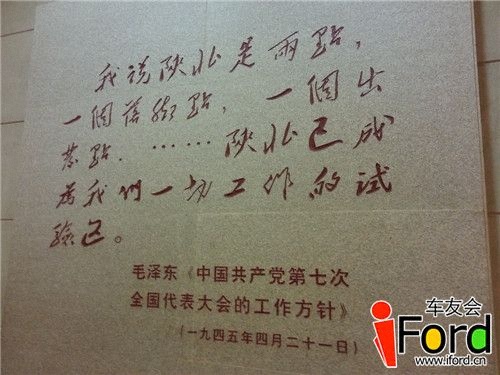 我说陕北是兩點，
一個落脚點，一個出
發點．……陕北已成
為我們一切工作的试
驗区。
毛泽东《中国共产党第七次
全国代表大会的工作方针》
（一九四五年四月二十一日）
车友会
iFord
www.iford.cn